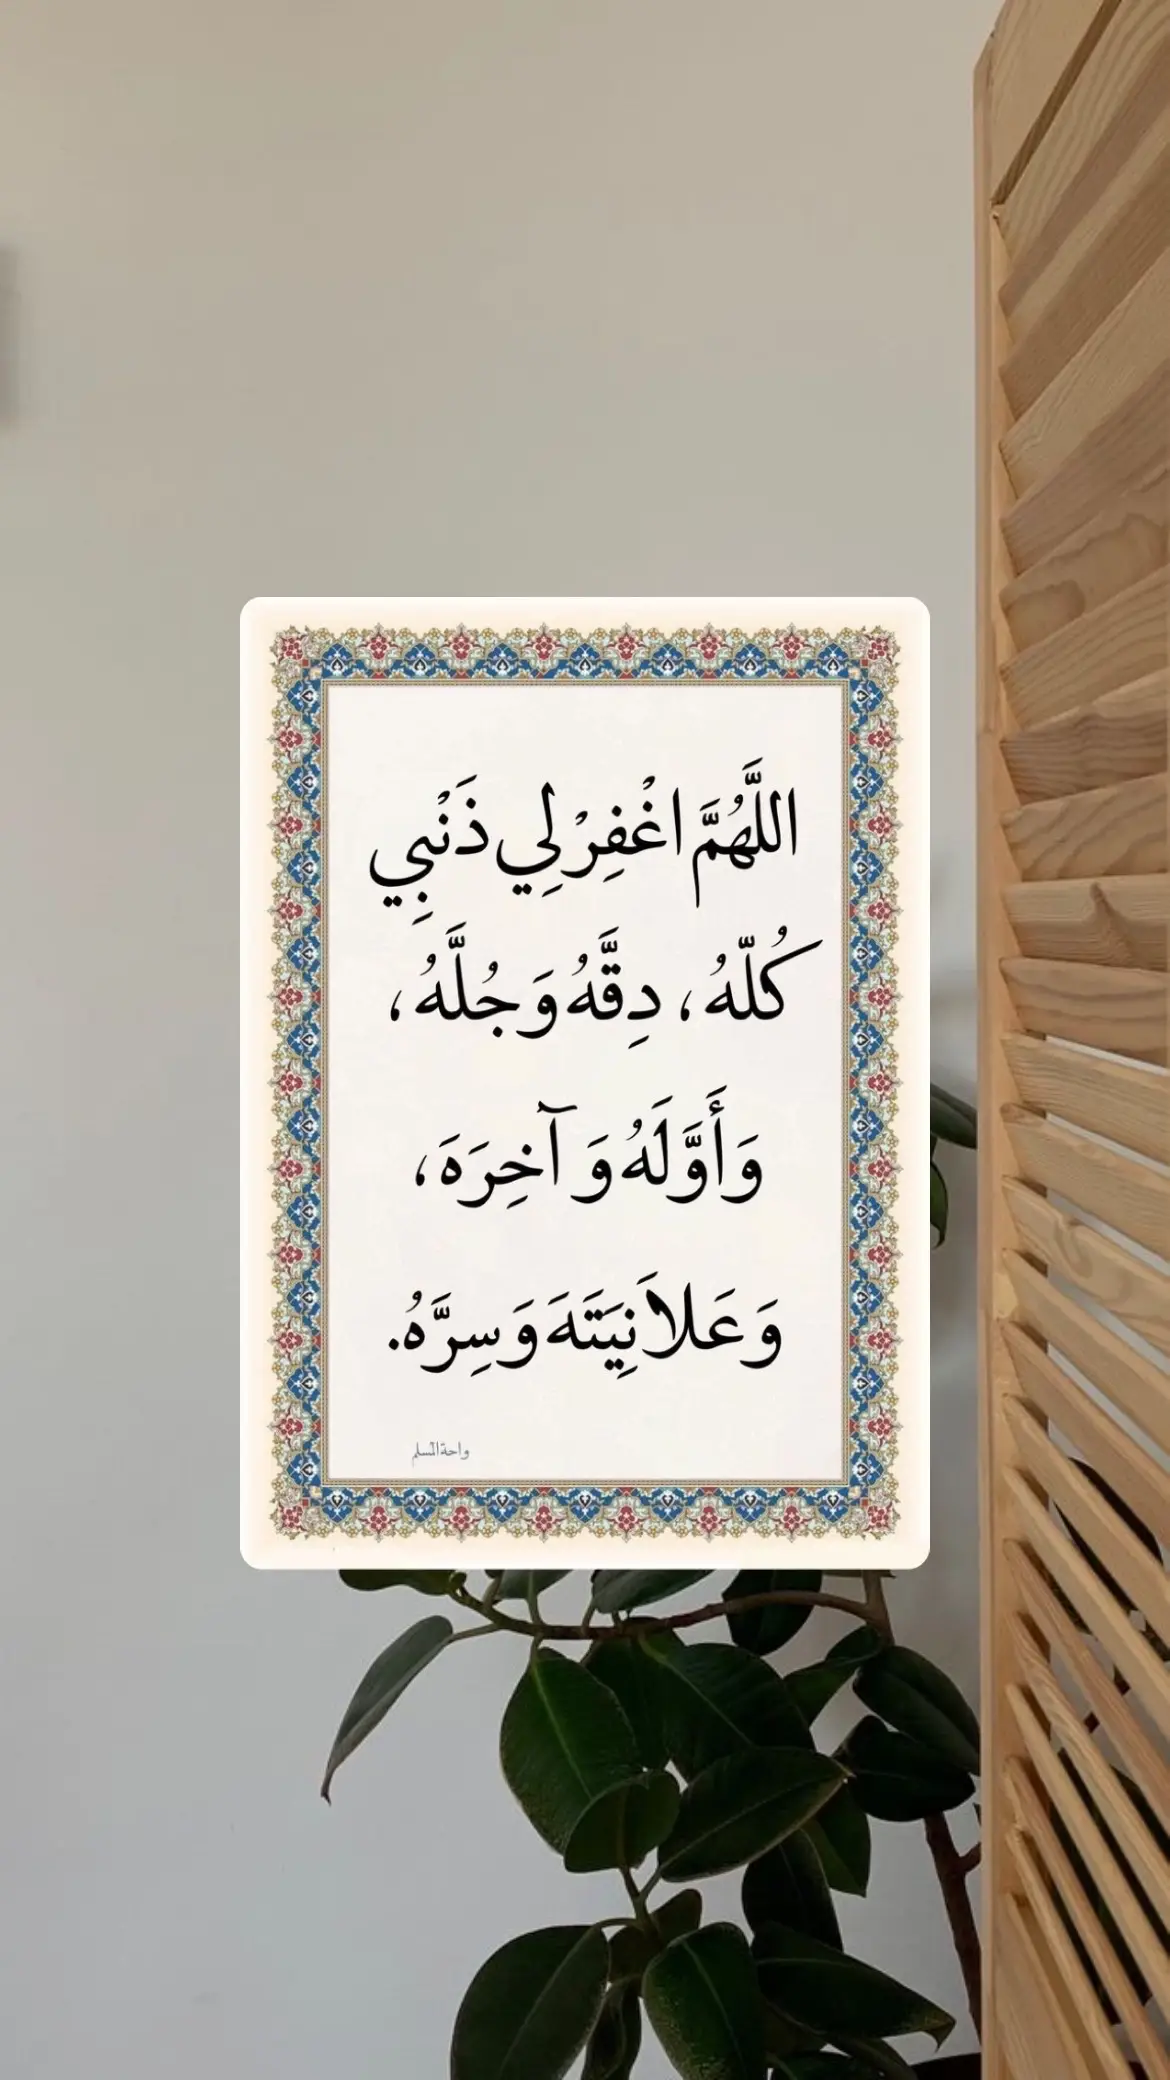 اللَّهُمَّ اغْفِرْ لِي ذَنْبِي
كُلّهُ، دِقَّهُ وَجُلَّهُ،
وَأَوَّلَهُ وَآخِرَهَ،
وَعَلاَنِيَتَهَ وَسِرَّهُ.
واحة المسلم